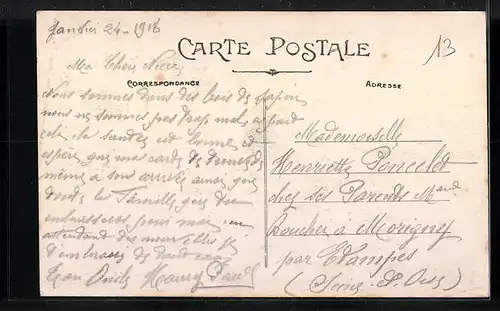 Janvier 24 - 1916
CARTE POSTALE
13
Ma Chère Nièce
CORRESPONDANCE
ADRESSE
Nous sommes dans des bois de sapin
nous ne sommes pas trop mal a part
cela. la santé est bonne et
espère que ma carte te
même a son arrivée ainsi que
toute la Famille que tu
embrasseras pour moi. en
attendant des nouvelles je
t'embrasse de tout cœur
Ton Oncle
Mademoiselle
Henriette Poncelet
chez ses Parents Mard
boucher à Morigny
par Etampes
(Seine-et-Oise)